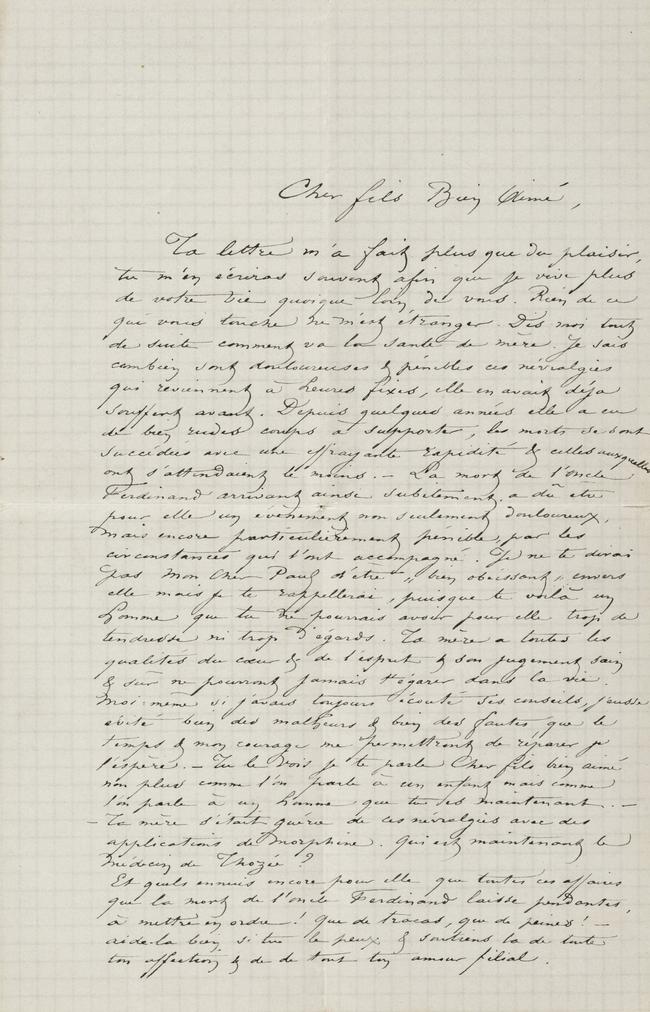 Cher fils Bien Aimé,
Ta lettre m'a fait plus que du plaisir,
tu m'en écriras souvent afin que je vive plus
de votre vie quoique loin de vous. Rien de ce
qui vous touche ne m'est étranger. Dis moi tout
de suite comment va la santé de mère. Je sais
combien sont douloureuses & pénibles ces névralgies
qui reviennent à heures fixes, elle en avait déja
souffert avant. Depuis quelques années elle a eu
de bien rudes coups à supporter, les morts se sont
succédées avec une effrayante rapidité & celles auxquelles
ont s'attendaient le moins. — La mort de l'oncle
Ferdinand arrivant ainsi subitement, a dû être
pour elle un événement non seulement douloureux,
mais encore particulièrement pénible, par les
circonstances qui l'ont accompagné. Je ne te dirai
pas mon cher Paul d'être „ bien obeissant „ envers
elle mais je te rappellerai, puisque te voilà un
homme que tu ne pourrais avoir pour elle trop de
tendresse ni trop d'égards. Ta mère a toutes les
qualités du cœur & de l'esprit & son jugement sain
& sûr ne pourront jamais t'égarer dans la vie.
Moi-même si j'avais toujours écouté ses conseils, j'eusse
évité bien des malheurs & bien des fautes que le
temps & mon courage me permettront de réparer je
l'espère. — Tu le vois je te parle Cher fils bien aimé
non plus comme l'on parle à un enfant mais comme
l'on parle à un homme que tu es maintenant. —
— Ta mère s'était guérie de ces névralgies avec des
applications de Morphine. Qui est maintenant le
médecin de Thozée ?
Et quels ennuis encore pour elle que toutes ces affaires
que la mort de l'oncle Ferdinand laisse pendantes,
à mettre en ordre ! que de tracas, que de peines ! —
aide-la bien si tu le peux & soutiens la de toute
ton affection & de de tout ton amour filial.